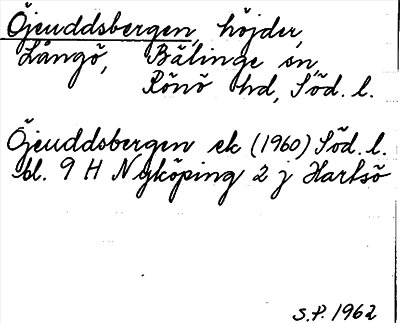 Öjeuddsbergen, höjder,
Långö, Bälinge sn,
Rönö hd, Söd. l.
Öjeuddsbergen ek (1960) Söd. l.
bl. 9 H Nyköping 2 j Hartsö
S.P. 1962